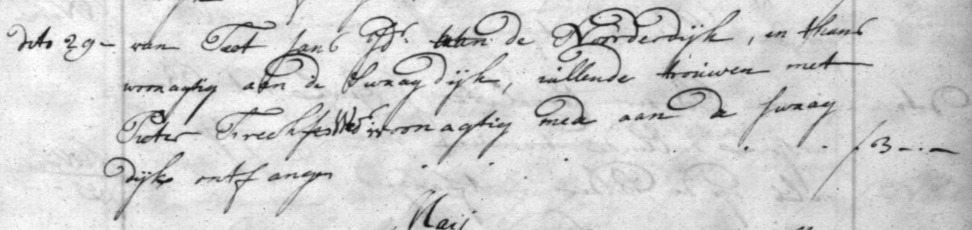 dito 29 – van Teet Jans Jd. aan de Noorderdijk, en thans
woonagtig aan de Swaagdijk, willende trouwen met
Pieter Wedr. woonagtig mede aan de Swaag
dijk ontfangen . . . . . . f 3 - . -
Maij